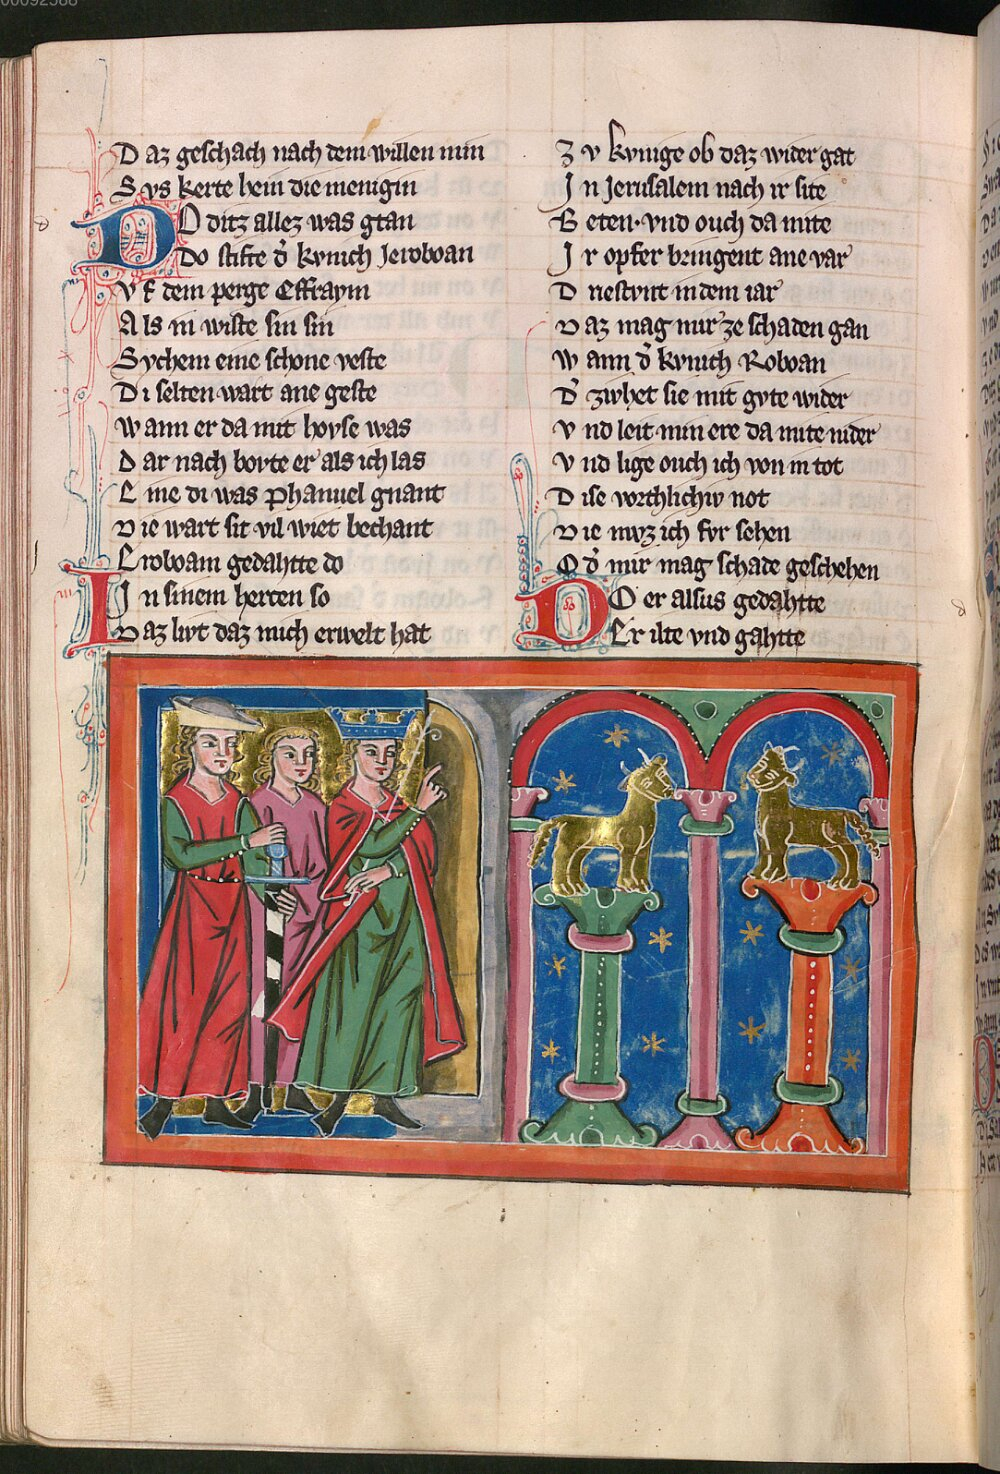 00092588
Daz geschach nach dem willen min
Sus kerte hein die menigin
DO ditz allez was gtan
Do stifte d̾ kvnich Jeroboan
Vf dem perge Effraym
Als in wiste sin sin
Sychem eine schone veste
Di selten wart ane geste
Wann er da mit hovse was
Dar nach bovte er als ich las
Eine di was Phanuel gnant
Die wart sit vil wiet bechant
Jeroboam gedahtte do
In sinem hercen so
Daz livt daz mich erwelt hat
Zv kvnige ob daz wider gat
In Jerusalem nach ir site
Beten· vnd ouch da mite
Ir opfer bringent ane var
Dristvnt in dem iar
Daz mag mir ze schaden gan
Wann d̾ kvnich Roboan
D̾ zivhet sie mit gvte wider
Vnd leit min ere da mite nider
Vnd lige ouch ich von in tot
Dise vorchlichiv not
Die mvz ich fvr sehen
Od̾ mir mag schade geschehen
DO er alsus gedahtte
Er ilte vnd gahtte